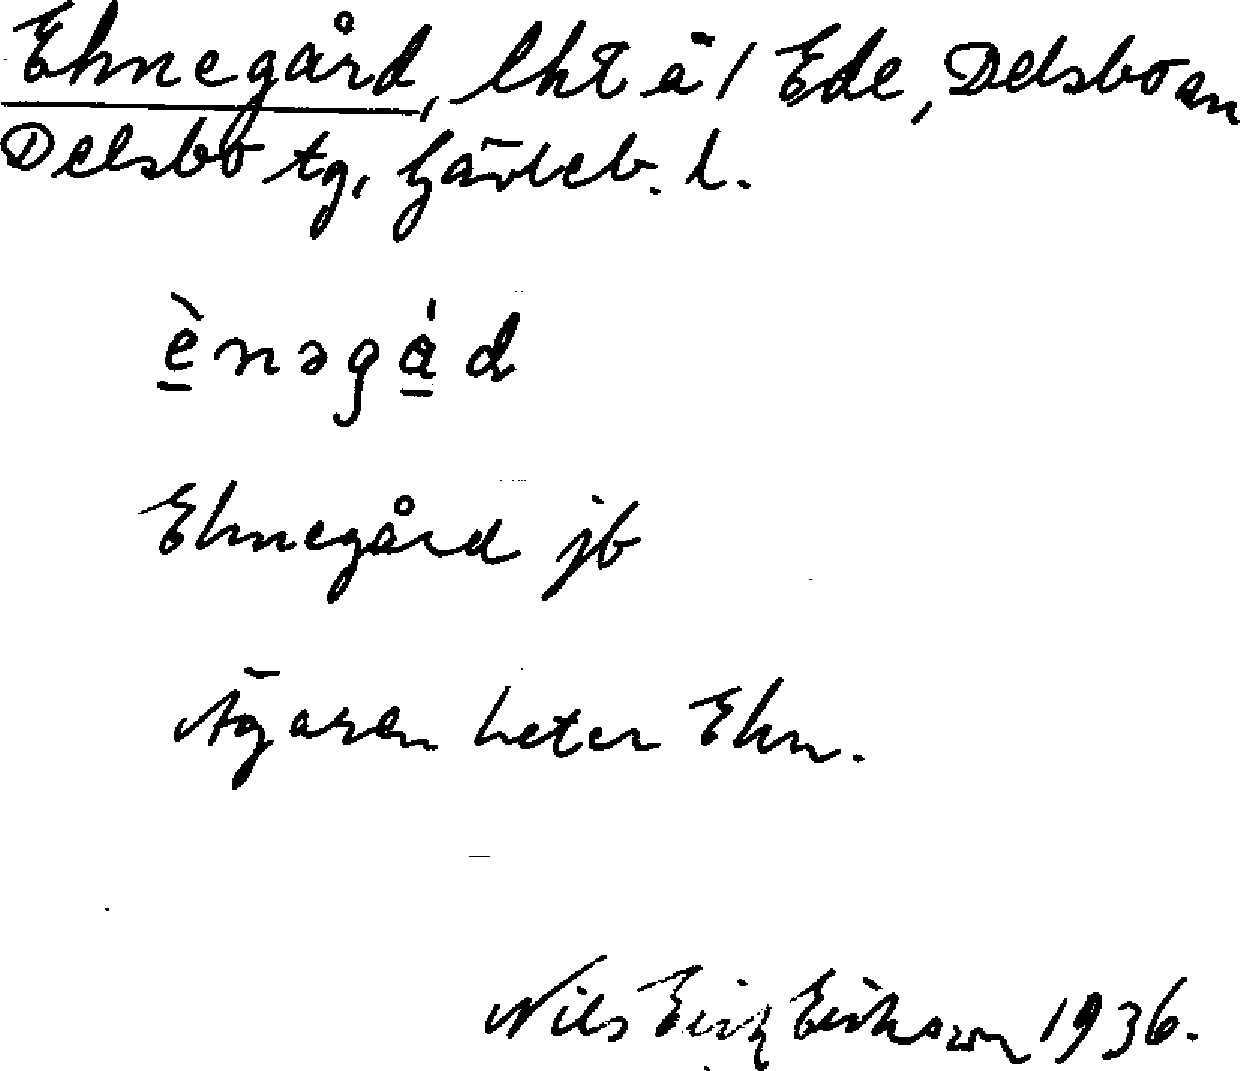 Ehnegård, lht å 1 Ede, Delsbo an
Delsbo tg, Gävleb. l.
è̲nəgá̲d
Ehnegård jb
Ägaren heter Ehn.
Nils Erik Erikson 1936.